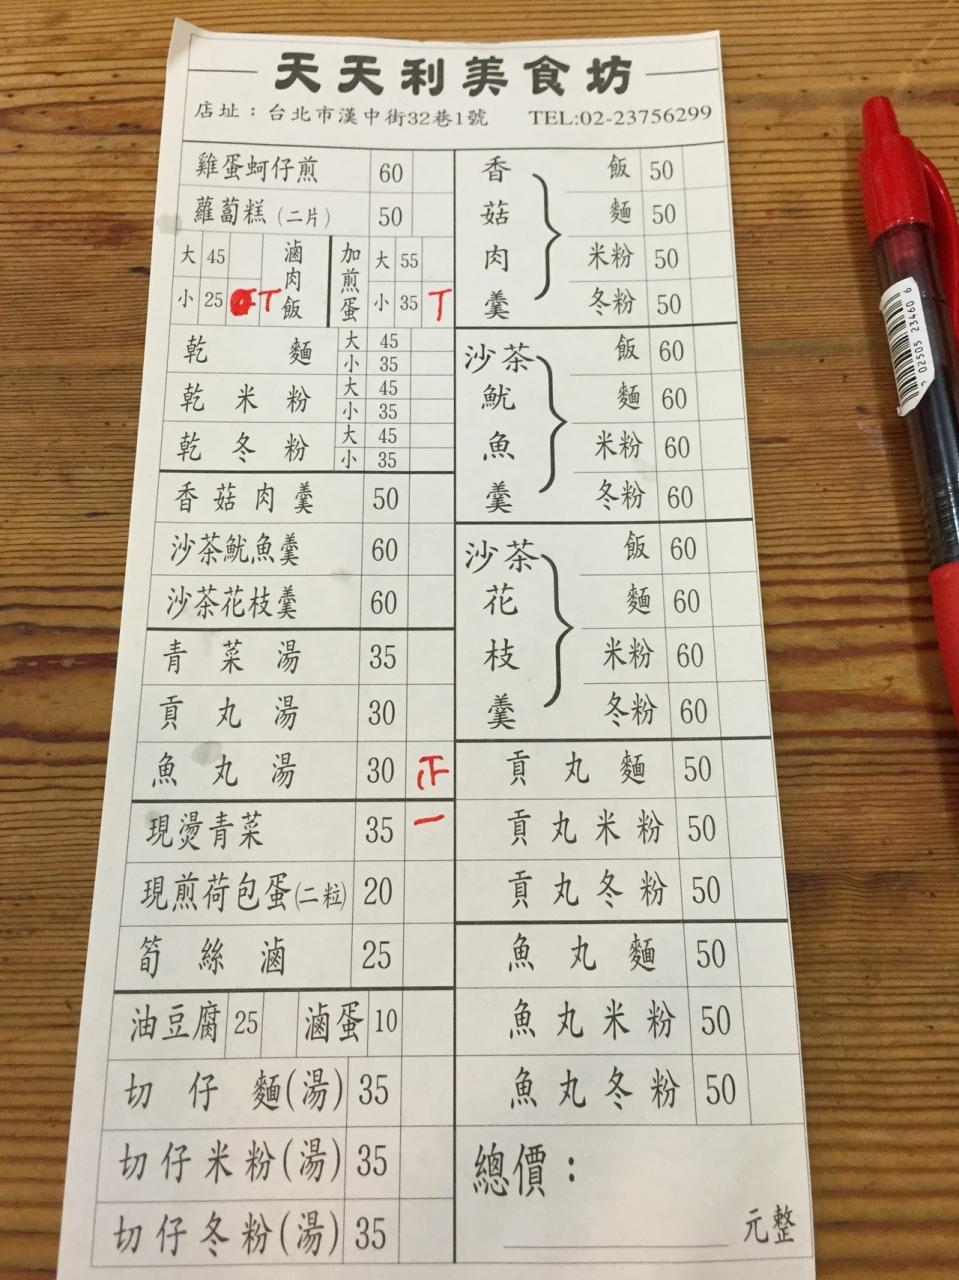 天天利美食坊
店址：台北市漢中街32巷1號 TEL:02-23756299
雞蛋蚵仔煎 60
蘿蔔糕（二片） 50
滷肉飯 大 45
小 25 T
加煎蛋 大 55
小 35 T
乾麵 大 45
小 35
乾米粉 大 45
小 35
乾冬粉 大 45
小 35
香菇肉羹 50
沙茶魷魚羹 60
沙茶花枝羹 60
青菜湯 35
貢丸湯 30
魚丸湯 30 正
現燙青菜 35 一
現煎荷包蛋(二粒) 20
筍絲滷 25
油豆腐 25 滷蛋 10
切仔麵(湯) 35
切仔米粉(湯) 35
切仔冬粉(湯) 35
香菇肉羹
飯 50
麵 50
米粉 50
冬粉 50
沙茶魷魚羹
飯 60
麵 60
米粉 60
冬粉 60
沙茶花枝羹
飯 60
麵 60
米粉 60
冬粉 60
貢丸麵 50
貢丸米粉 50
貢丸冬粉 50
魚丸麵 50
魚丸米粉 50
魚丸冬粉 50
總價：
元整
02505 23460 6